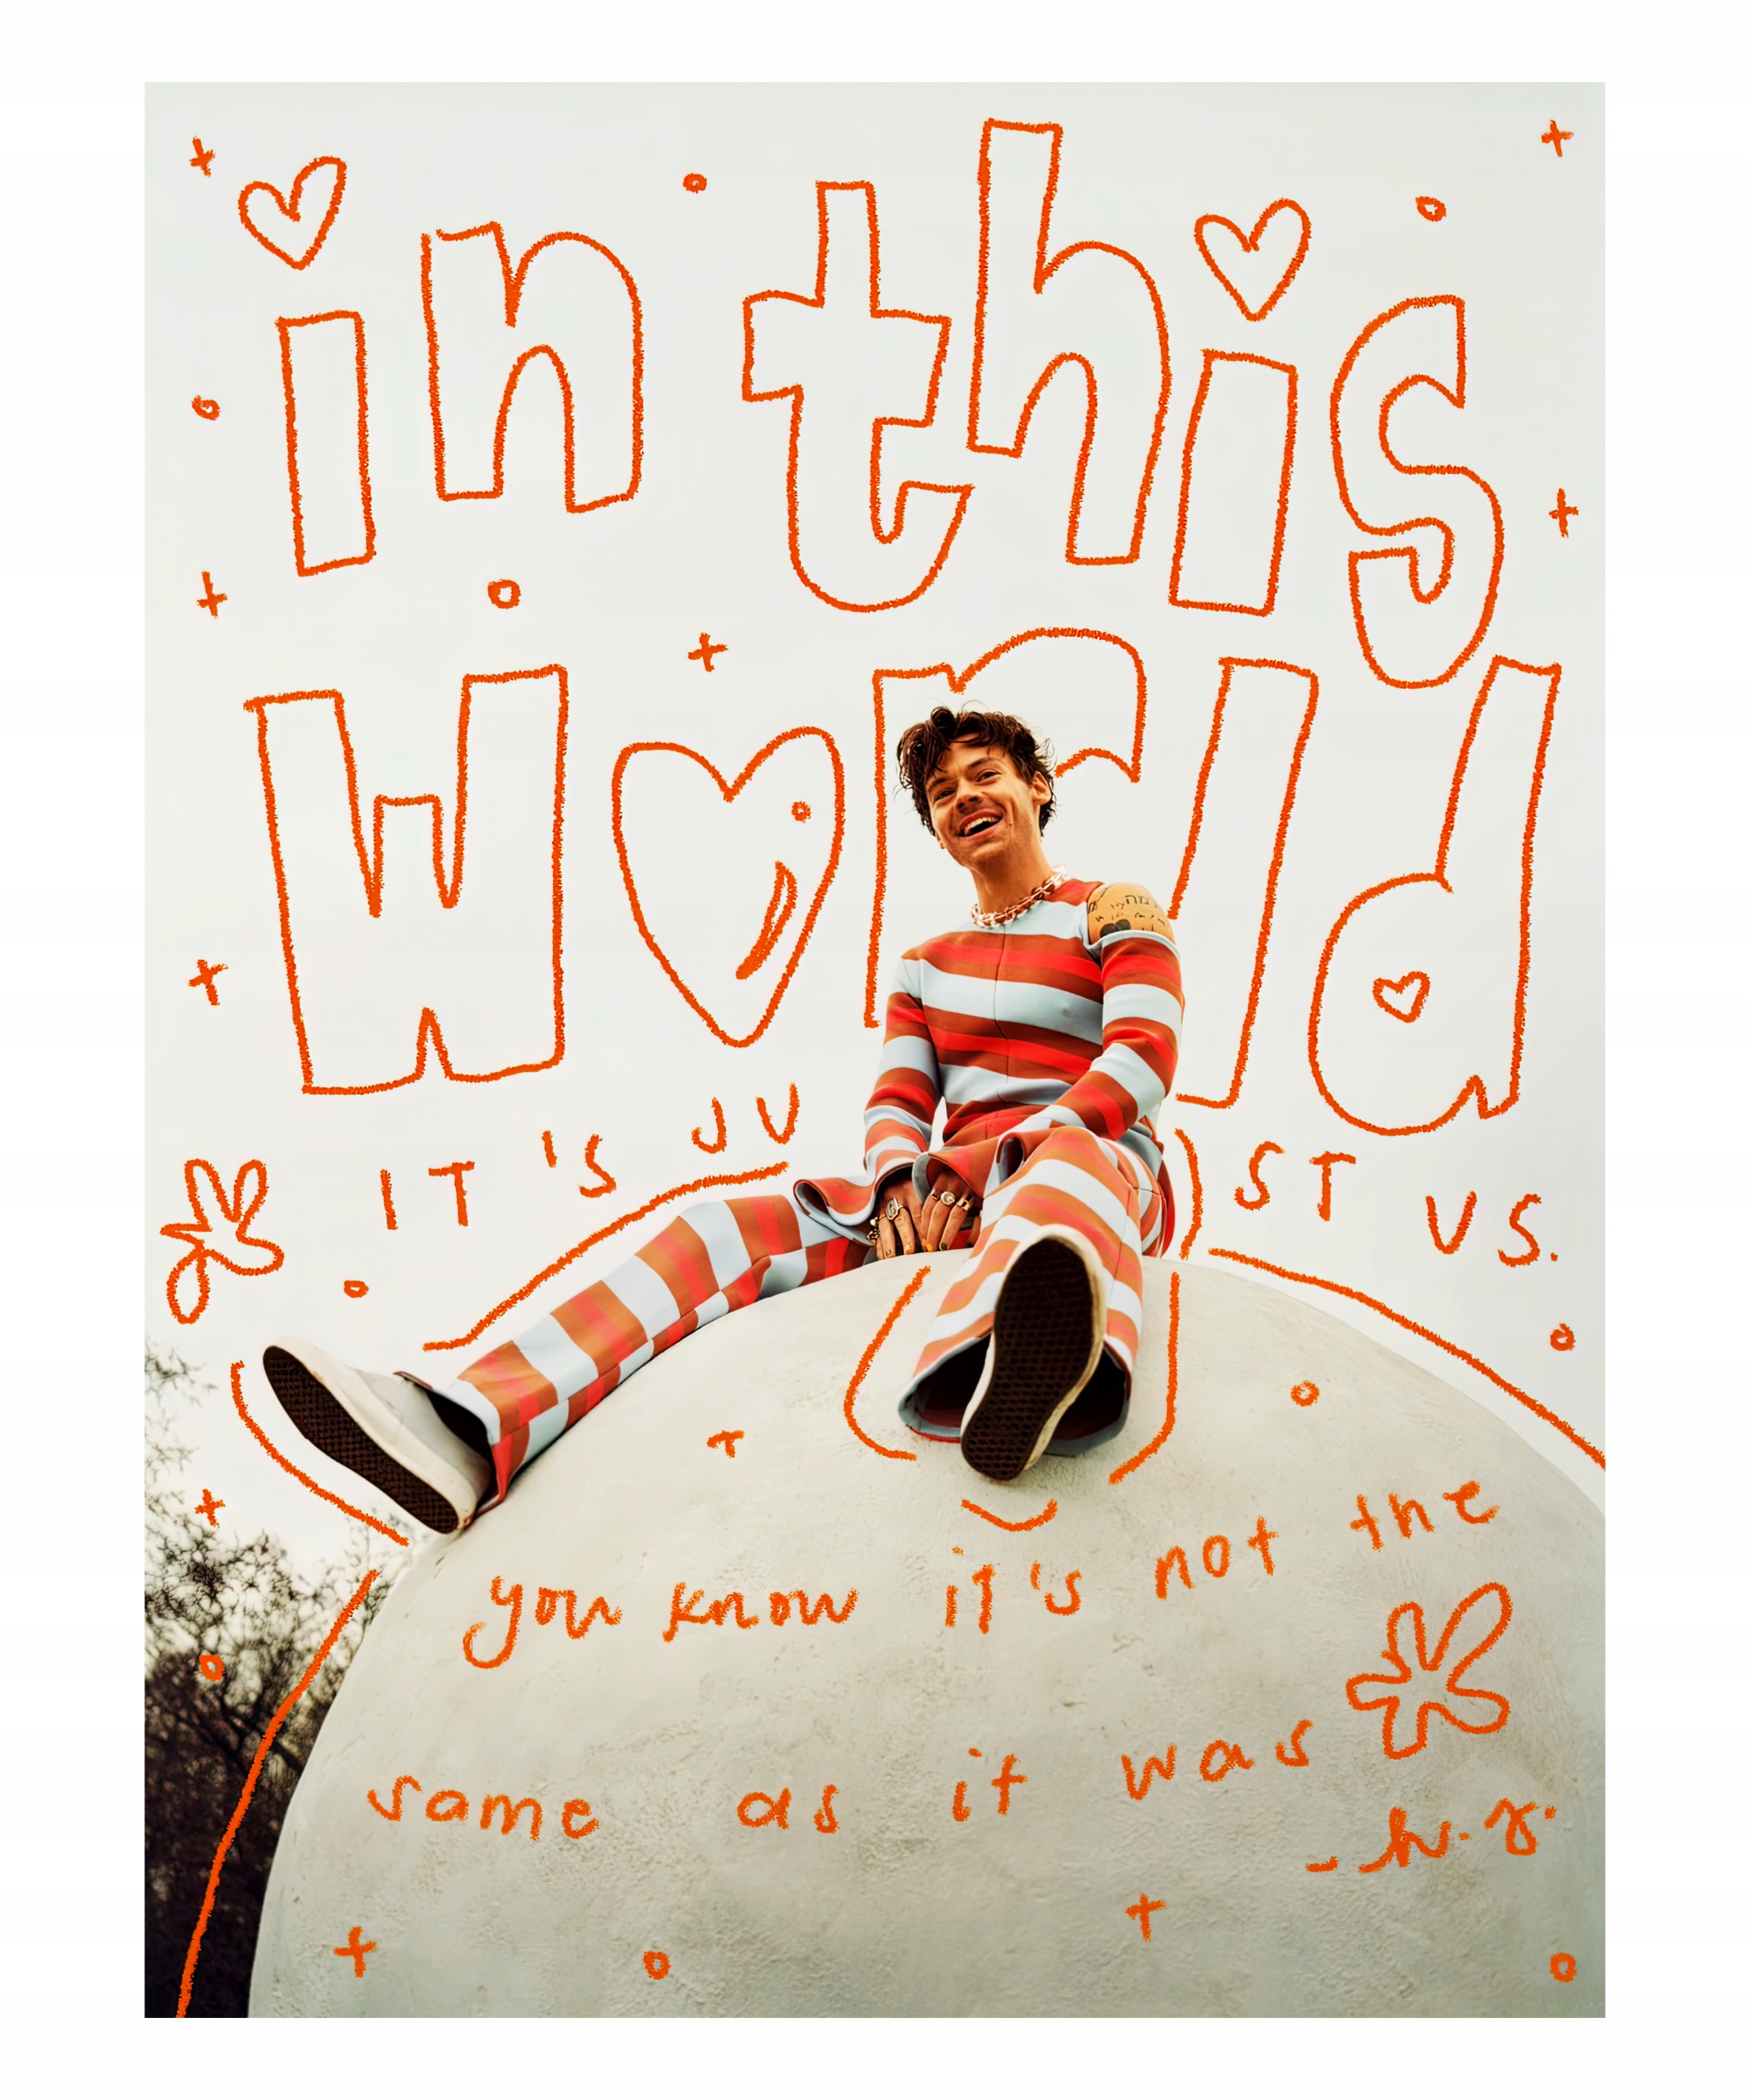 in this
world
IT'S JUST US.
you know it's not the
same as it was
- h.s.